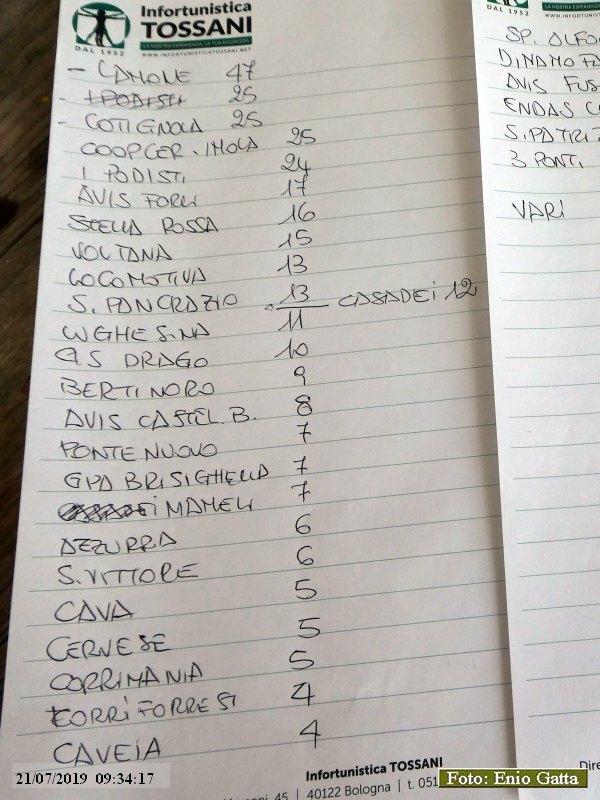 Infortunistica
TOSSANI
DAL 1952
LA NOSTRA ESPERIENZA, LA TUA SICUREZZA
WWW.INFORTUNISTICATOSSANI.NET
- CAMONE 47
- I PODISTI 25
- COTIGNOLA 25
COOPCER. IMOLA 25
I PODISTI 24
AVIS FORLI 17
STELLA ROSSA 16
VOLTANA 15
LOCOMOTIVA 13
S. PANCRAZIO 13 CASADEI 12
LUGHESINA 11
GS DRAGO 10
BERTINORO 9
AVIS CASTEL. B. 8
PONTE NUOVO 7
GPA BRISIGHELLA 7
MAMELI 7
AZZURRA 6
S. VITTORE 6
CAVA 5
CERVESE 5
CORRIMANIA 5
CORRIFORREST 4
CAVEIA 4
Infortunistica TOSSANI
45 | 40122 Bologna | t. 051
DAL 1952
SP. ALFO
DINAMO FA
AVIS FUS
ENDAS C
S. PATRIZ
3 PONTI
VARI
Dire
21/07/2019 09:34:17
Foto: Enio Gatta